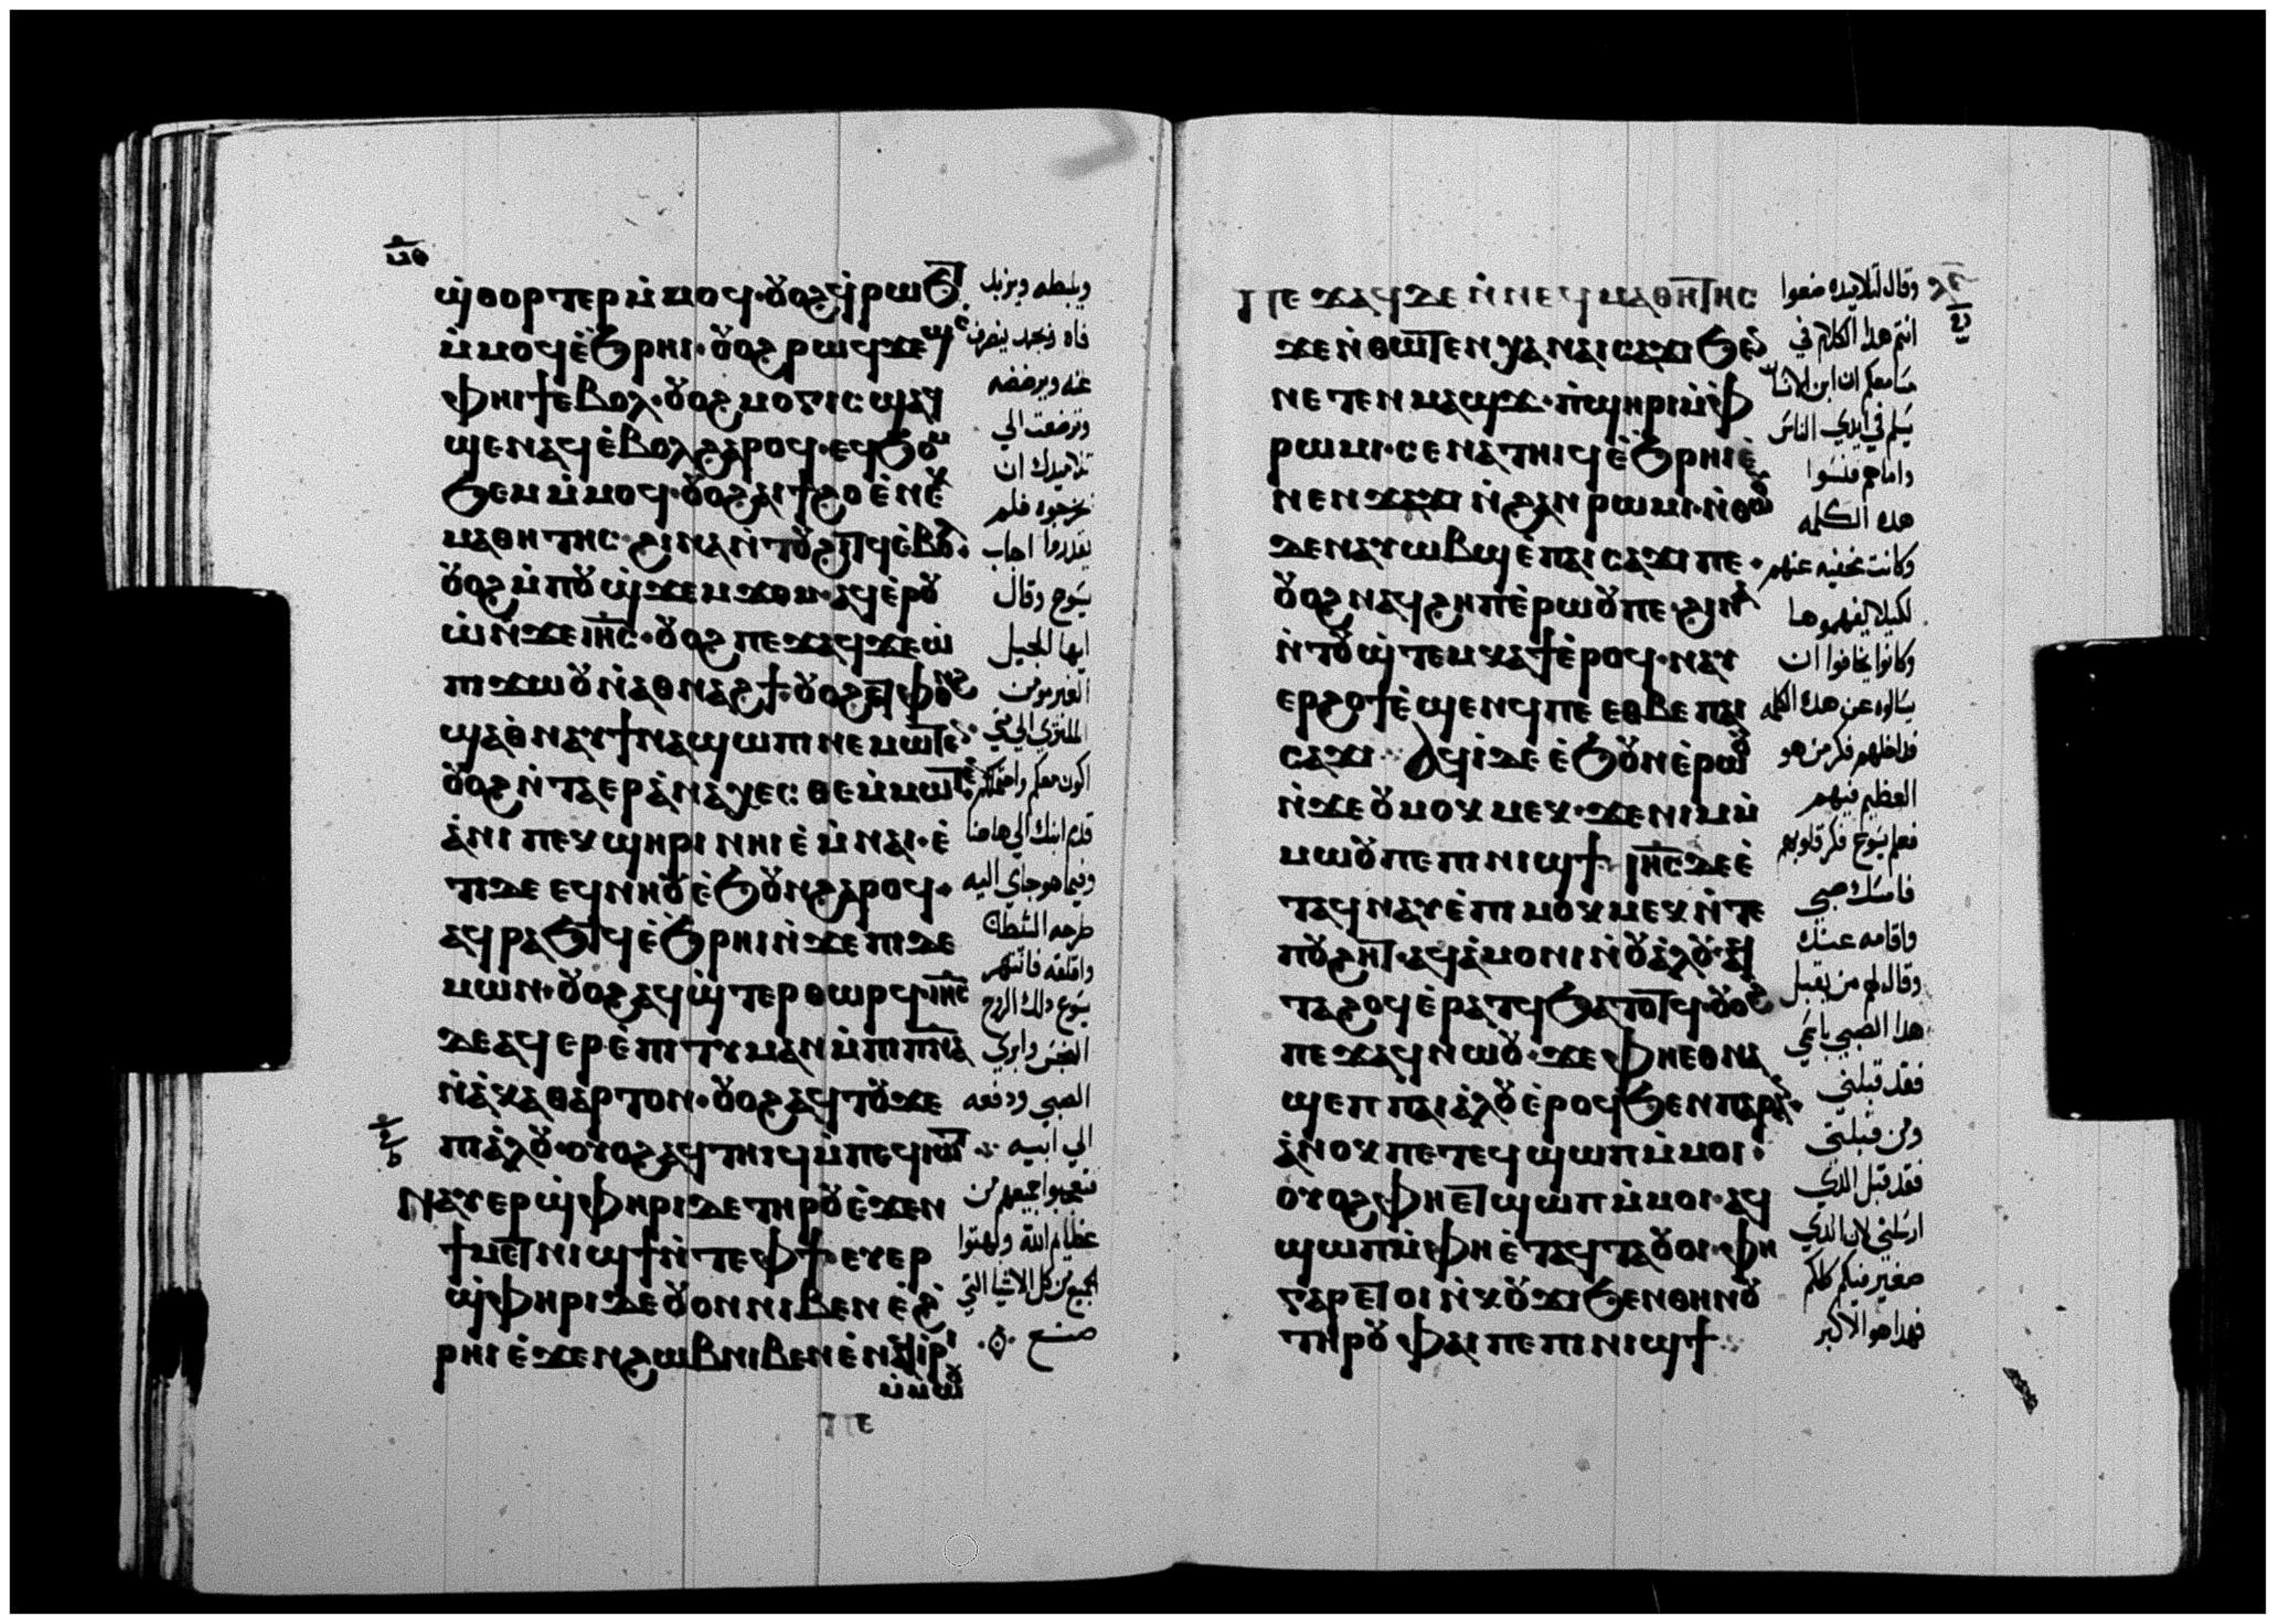 ⲛ̅ⲑ
ϣ̀ⲑⲟⲣⲧⲉⲣ ⲙ̀ⲙⲟϥ· ⲟⲩⲟϩ ϥ̀ⲣⲱϧⲧ
ⲙ̀ⲙⲟϥ ⲉ̀ϧⲣⲏⲓ· ⲟⲩⲟϩ
ⲉⲃⲟⲗ· ⲟⲩⲟϩ ⲙⲟⲅⲓⲥ ϣⲁϥ
ϣⲉⲛⲁϥ ⲉ̀ⲃⲟⲗϩⲁⲣⲟϥ· ⲉϥϧⲟⲙ
ϧⲉⲙ ⲙ̀ⲙⲟϥ· ⲟⲩⲟϩ ⲁⲓϯϩⲟ ⲉ̀ⲛⲉⲕ
ⲙⲁⲑⲏⲧⲏⲥ ϩⲓⲛⲁ ⲛ̀ⲧⲟⲩϩⲓⲧϥ ⲉ̀ⲃⲟⲗ·
ⲟⲩⲟϩ ⲙ̀ⲡⲟⲩϣ̀ϫⲉⲙϫⲟⲙ· ⲁϥⲉ̀ⲣⲟⲩ
ⲱ̀ ⲛ̀ϫⲉ ⲓⲏ̅ⲥ̅· ⲟⲩⲟϩ ⲡⲉϫⲁϥ ϫⲉ ⲱ̀
ⲡⲓϫⲱⲟⲩ ⲛ̀ⲁⲑⲛⲁϩϯ· ⲟⲩⲟϩ ⲉⲧⲫⲟⲛϩ
ϣⲁ ⲑ̀ⲛⲁⲩ ϯⲛⲁϣⲱⲡⲓ ⲛⲉⲙⲱⲧⲉⲛ·
ⲟⲩⲟϩ ⲛ̀ⲧⲁⲉⲣⲁ̀ⲛⲁⲭⲉⲥⲑⲉ ⲙ̀ⲙⲱⲧⲉⲛ
ⲁ̀ⲛⲓ ⲡⲉⲕϣⲏⲣⲓ ⲛⲏⲓ ⲉ̀ⲙ̀ⲛⲁⲓ· ⲉ̀
ⲧⲓⲇⲉ ⲉϥⲛⲏⲟⲩ ⲉ̀ϧⲟⲩⲛ ϩⲁⲣⲟϥ·
ⲁϥⲣⲁϧⲧϥ ⲉ̀ϧⲣⲏⲓ ⲛ̀ϫⲉ ⲡⲓⲇⲉ
ⲙⲱⲛ· ⲟⲩⲟϩ ⲁϥϣ̀ⲧⲉⲣⲑⲱⲣϥ· ⲓⲏ̅ⲥ̅
ⲇⲉ ⲁϥⲉⲣⲉ̀ⲡⲓⲧⲓⲙⲁⲛ ⲙ̀ⲡⲓⲡⲛ̅ⲁ̅
ⲛ̀ⲁ̀ⲕⲁⲑⲁⲣⲧⲟⲛ· ⲟⲩⲟϩ ⲁϥⲧⲟⲩϫⲉ
ⲡⲓⲁ̀ⲗⲟⲩ· ⲟⲩⲟϩ ⲁϥⲧⲏⲓϥ ⲙ̀ⲡⲉϥⲓⲱⲧ
ⲛⲁⲩⲉⲣϣ̀ⲫⲏⲣⲓ ⲇⲉ ⲧⲏⲣⲟⲩ ⲉ̀ϫⲉⲛ
ϯⲙⲉⲧⲛⲓϣϯ ⲛ̀ⲧⲉ ⲫϯ· ⲉⲩⲉⲣ
ϣ̀ⲫⲏⲣⲓ ⲇⲉ ⲟⲩⲟⲛ ⲛⲓⲃⲉⲛ ⲉ̀ϩ̀
ⲣⲏⲓ ⲉ̀ϫⲉⲛ ϩⲱⲃ ⲛⲓⲃⲉⲛ ⲉ̀ⲛⲁϥⲓⲣⲓ
ⲙ̀ⲙⲱⲟⲩ
ⲡⲉ
ويلبطه ويزبد
فاه وبجهد ينصرف
عنه ويرضضه
وتضرعت الي
تلاميدك ان
يخرجوه فلم
يقدروا اجاب
يسوع وقال
ايها الجيل
الغير مومن
الملتوي الي متي
اكون معكم واحتملكم
قدم ابنك الي هاهنا
وفيما هو جاي اليه
طرحه الشيطان
واقلقه فانتهر
يسوع دلك الروح
النجس وابري
الصبي ودفعه
الي ابيه
فتعجبوا جميعهم من
عظايم الله وبهتوا
الجميع من كل الاشيا التي
صنع
ⲡⲉϫⲁϥ ⲇⲉ ⲛ̀ⲛⲉϥⲙⲁⲑⲏⲧⲏⲥ
ϫⲉ ⲛ̀ⲑⲱⲧⲉⲛ ⲭⲁ ⲛⲁⲓⲥⲁϫⲓ ϧⲉⲛ
ⲛⲉⲧⲉⲛⲙⲁϣϫ· ⲡ̀ϣⲏⲣⲓ ⲙ̀ⲫ̀
ⲣⲱⲙⲓ· ⲥⲉⲛⲁⲧⲏⲓϥ ⲉ̀ϧⲣⲏⲓ ⲉ̀
ⲛⲉⲛϫⲓϫ ⲛ̀ϩⲁⲛⲣⲱⲙⲓ· ⲛ̀ⲑⲱⲟⲩ
ⲇⲉ ⲛⲁⲩⲱⲃϣ ⲉ̀ⲡⲁⲓⲥⲁϫⲓ ⲡⲉ·
ⲟⲩⲟϩ ⲛⲁϥϩⲏⲡ ⲉ̀ⲣⲱⲟⲩ ⲡⲉ· ϩⲓⲛⲁ
ⲛ̀ⲧⲟⲩϣ̀ⲧⲉⲙⲕⲁϯ ⲉ̀ⲣⲟϥ· ⲛⲁⲩ
ⲉⲣϩⲟϯ ⲉ̀ϣⲉⲛϥ ⲡⲉ ⲉⲑⲃⲉ ⲡⲁⲓ
ⲥⲁϫⲓ· ⲁϥⲓ̀ ⲇⲉ ⲉ̀ϧⲟⲩⲛ ⲉ̀ⲣⲱⲟⲩ
ⲛ̀ϫⲉ ⲟⲩⲙⲟⲕⲙⲉⲕ· ϫⲉ ⲛⲓⲙ ⲙ̀
ⲙⲱⲟⲩ ⲡⲉ ⲡⲓⲛⲓϣϯ ⲓⲏ̅ⲥ̅ ⲇⲉ ⲉ̀
ⲧⲁϥⲛⲁⲩ ⲉ̀ⲡⲓⲙⲟⲕⲙⲉⲕ ⲛ̀ⲧⲉ
ⲡⲟⲩϩⲏⲧ· ⲁϥⲁ̀ⲙⲟⲛⲓ ⲛ̀ⲟⲩⲁ̀ⲗⲟⲩ· ⲁϥ
ⲧⲁϩⲟϥ ⲉ̀ⲣⲁⲧϥ ϧⲁⲧⲟⲧϥ· ⲟⲩⲟϩ
ⲡⲉϫⲁϥ ⲛⲱⲟⲩ· ϫⲉ ⲫⲏⲉⲑⲛⲁ
ϣⲉⲡ ⲡⲁⲓⲁ̀ⲗⲟⲩ ⲉ̀ⲣⲟϥ ϧⲉⲛ ⲡⲁⲣⲁⲛ·
ⲁ̀ⲛⲟⲕ ⲡⲉⲧⲉϥϣⲱⲡ ⲙ̀ⲙⲟⲓ·
ⲟⲩⲟϩ ⲫⲏⲉⲧϣⲱⲡ ⲙ̀ⲙⲟⲓ· ⲁϥ
ϣⲱⲡ ⲙ̀ⲫⲏⲉ̀ⲧⲁϥⲧⲁⲟⲩⲟⲓ· ⲫⲏ
ⲅⲁⲣ ⲉⲧⲟⲓ ⲛ̀ⲕⲟⲩϫⲓ ϧⲉⲛ ⲑⲏⲛⲟⲩ
ⲧⲏⲣⲟⲩ ⲫⲁⲓ ⲡⲉ ⲡⲓⲛⲓϣϯ
وقال لتلاميده ضعوا
انتم هدا الكلام في
مسامعكم ان ابن الانسان
يسلم في ايدي الناس
واما هم فنسوا
هده الكلمه
وكانت مخفيه عنهم
لكيلا يفهموها
وكانوا يخافوا ان
يسالوه عن هده الكلمه
فداخلهم فكر من هو
العظيم فيهم
فعلم يسوع فكر قلوبهم
فامسك صبي
واقامه عنده
وقال لهم من يقبل
هذا الصبي باسمي
فقد قبلني
ومن قبلني
فقد قبل الذي
ارسلني لان الدي
صغير فيكم كلكم
فهدا هو الاكبر